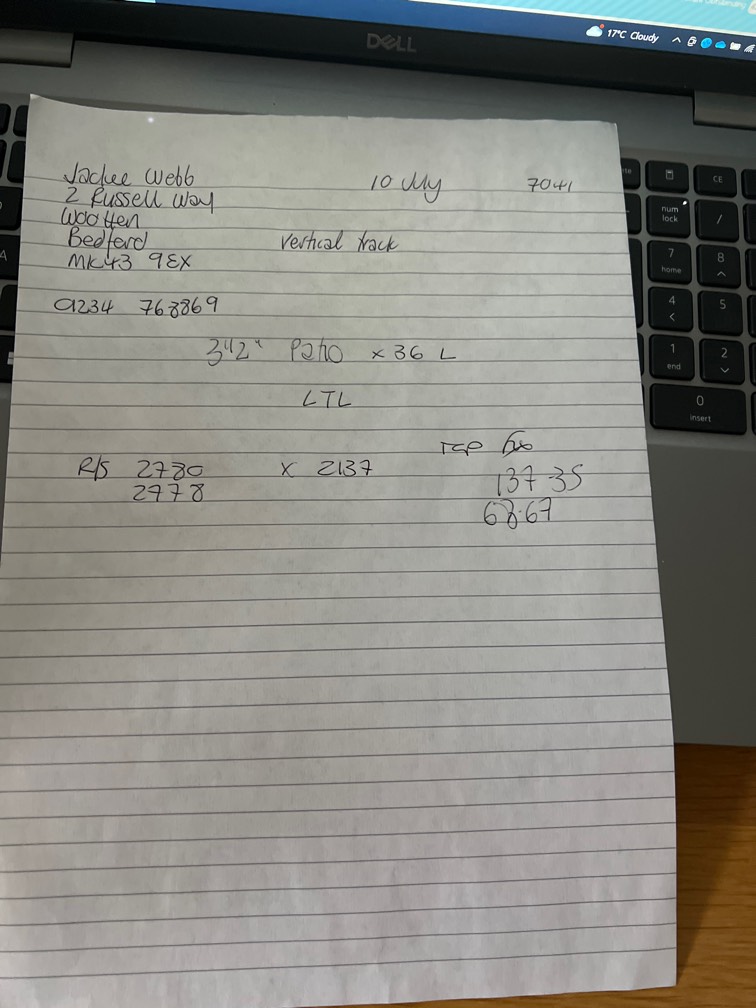 DELL
17°C Cloudy
Jackee Webb
10 July
7041
2 Russell Way
Wootten
Bedford
Vertical track
MK43 9EX
01234 768869
3 1/2" Patio x 36 L
LTL
Top fix
R/S 2780 x 2137
137-35
2778
68.67
CE
num lock
/
7 home
8
4
5
1 end
2
0 insert
A